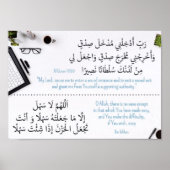 رَبِّ أَدْخِلْنِي مُدْخَلَ صِدْقٍ
وَأَخْرِجْنِي مُخْرَجَ صِدْقٍ وَاجْعَل لِّي
مِن لَّدُنكَ سُلْطَانًا نَّصِيرًا
"My Lord, cause me to enter a sound entrance and to exit a sound exit
and grant me from Yourself a supporting authority."
اللَّهُمَّ لَا سَهْلَ
إِلَّا مَا جَعَلْتَهُ سَهْلًا وَ أَنْتَ
تَجْعَلُ الْحَزْنَ إِذَا شِئْتَ سَهْلًا
O Allah, there is no ease except
in that which You have made easy,
and You make the difficulty,
if You wish, easy.